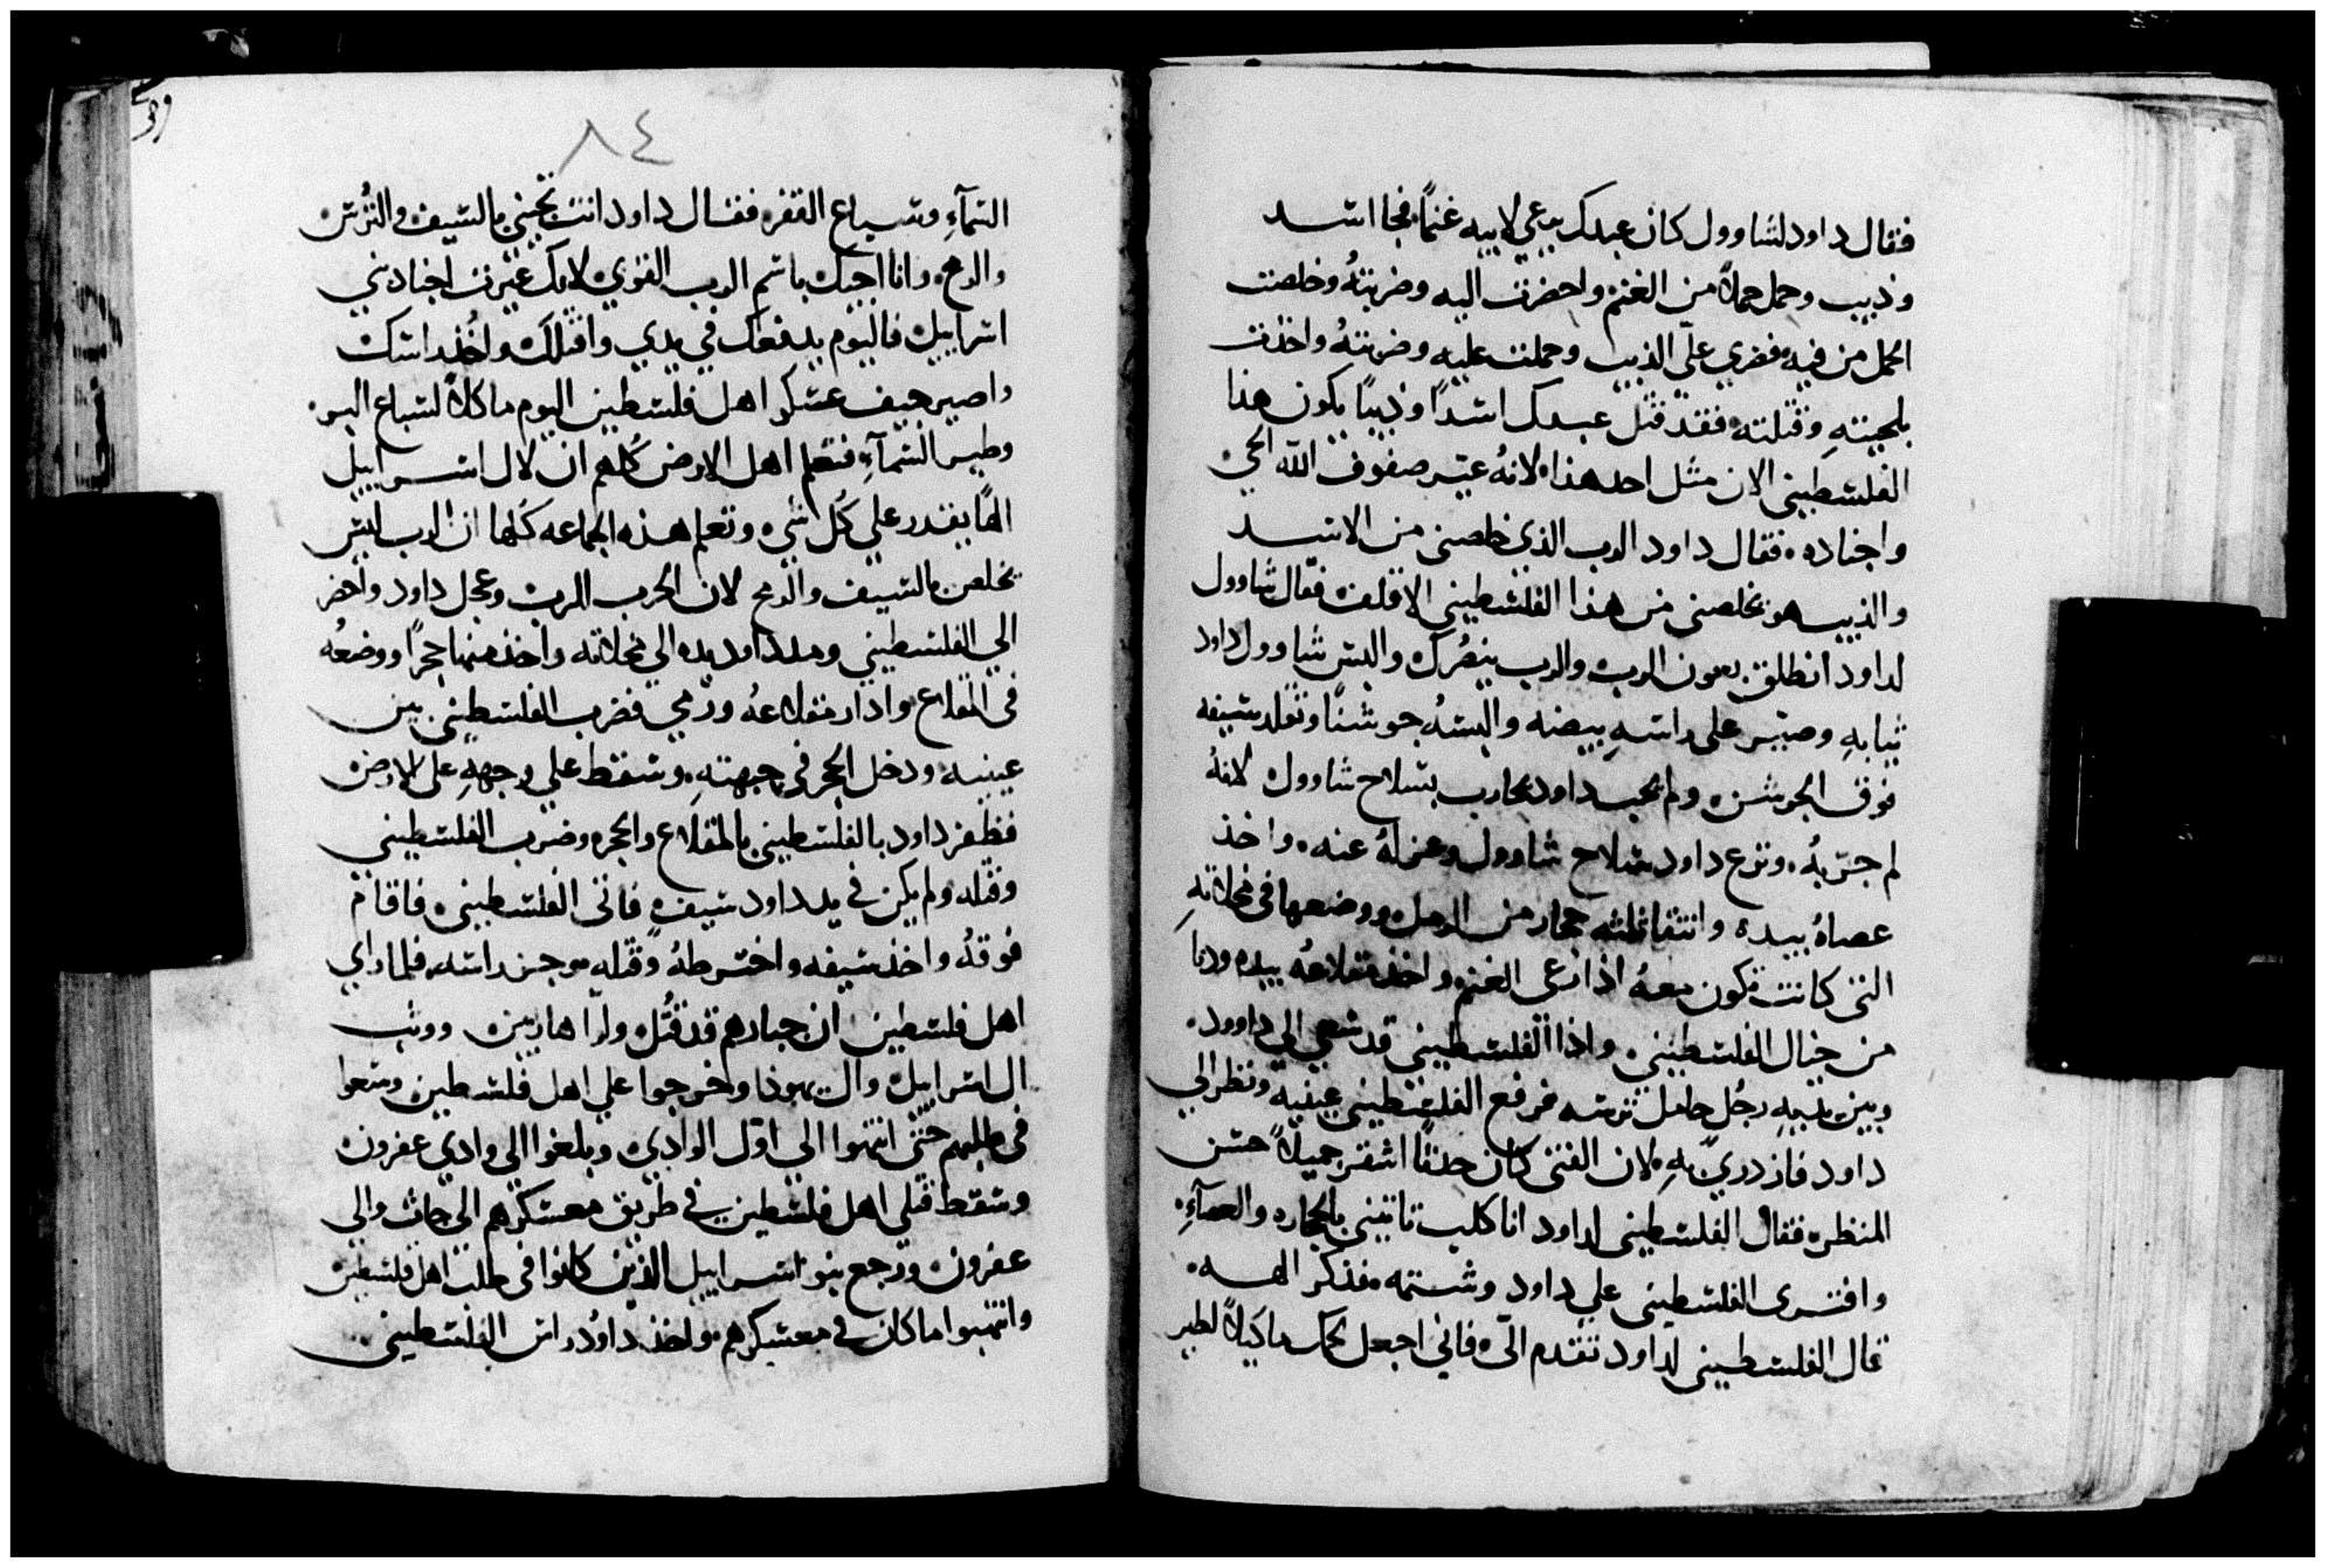 فقال داود لشاوول كان عبدك يرعي لابيه غنماً فجا اسد
وذيب وحمل حملاً من الغنم واحضرت اليه وضربتهُ وخلصت
الحمل من فيه فضري علّي الذيب وحملت عليه وضربتهُ واخذت
بلحيتهِ وقتلته فقد قتل عبدك اسداً وذيباً يكون هذا
الفلسطيني الان مثل احد هذا لانهُ عيّر صفوف الله الحي
واجناده فقال داود الرب الذي خلصني من الاسد
والذيب هو يخلصني من هذا الفلسطيني الاقلف فقال شاوول
لداود انطلق بعون الرب والرب ينصُرك والبس شاوول داود
ثيابهِ وصيّر علي راسهِ بيضه والبسهُ جوشناً وتقلد سيفه
فوق الجوشن ولم يحب داود يحارب بسلاح شاوول لانهُ
لم جرّبهُ ونزع داود سلاح شاوول وعزلهُ عنه واخذ
عصاهُ بيده وانتقا ثلثه حجار من الرمل ووضعها في مخلاتهِ
التي كانت تكون معهُ اذا رعي الغنم واخذ مقلاعهُ بيده ودنا
من خيال الفلسطيني واذا الفلسطيني قد سعي الي داوود
وبين يديهِ رجُل حامل ترسه فرفع الفلسطيني عينيه ونظر الي
داود فازدريّ بهِ لان الفتي كان حدثاً اشقر جميلاً حسن
المنظر فقال الفلسطيني لداود انا كلب تاتيني بالحجاره والعصآءِ
وافترى الفلسطيني علي داود وشتمه فذكر الهه
قال الفلسطيني لداود تقدم الّي فاني اجعل لحمك ماكلاً لطير
٨٤
السمآءِ وسباع القفر فقال داود انت تجيني بالسيف والتُرس
والرمح وانا اجيك باسم الرب القوي لانك عيّرت اجناد بني
اسراييل فاليوم يدفعك في يدي واقتلك واخُذ راسك
واصير جيف عسكر اهل فلسطين اليوم ماكلاً لسباع البر
وطير السمآءِ فتعلم اهل الارض كُلهم ان لال اسراييل
الهاً يقدر علي كُل شيء وتعلم هذه الجماعه كُلها ان الرب ليس
يخلص بالسيف والرمح لان الحرب للرب وعجل داود واحضر
الي الفلسطيني ومد داود يده الي مخلاته واخذ منها حجراً ووضعُه
في المقلاع وادار مقلاعهُ ورمي فضرب الفلسطيني بين
عينيه ودخل الحجر في جبهتهِ وسقط علي وجههِ علي الارض
فظفر داود بالفلسطيني بالمقلاع والحجر وضرب الفلسطيني
وقتله ولم يكن في يد داود سيف فاتي الفلسطيني فاقام
فوقهُ واخذ سيفه واخترطهُ وقتله وجز راسه فلما راي
اهل فلسطين ان جبارهم قد قُتل ولوا هاربين ووثب
ال اسراييل وال يهوذا وخرجوا علي اهل فلسطين وسعوا
في طلبهم حتّي انتهوا الي اوّل الوادي وبلغوا الي وادي عفرون
وسقط قتلي اهل فلسطين في طريق معسكرهم الي جاث والي
عفرون ورجع بنو اسراييل الذين كانوا في طلب اهل فلسطين
وانتهبوا ما كان في معسكرهم واخذ داوُد راس الفلسطيني